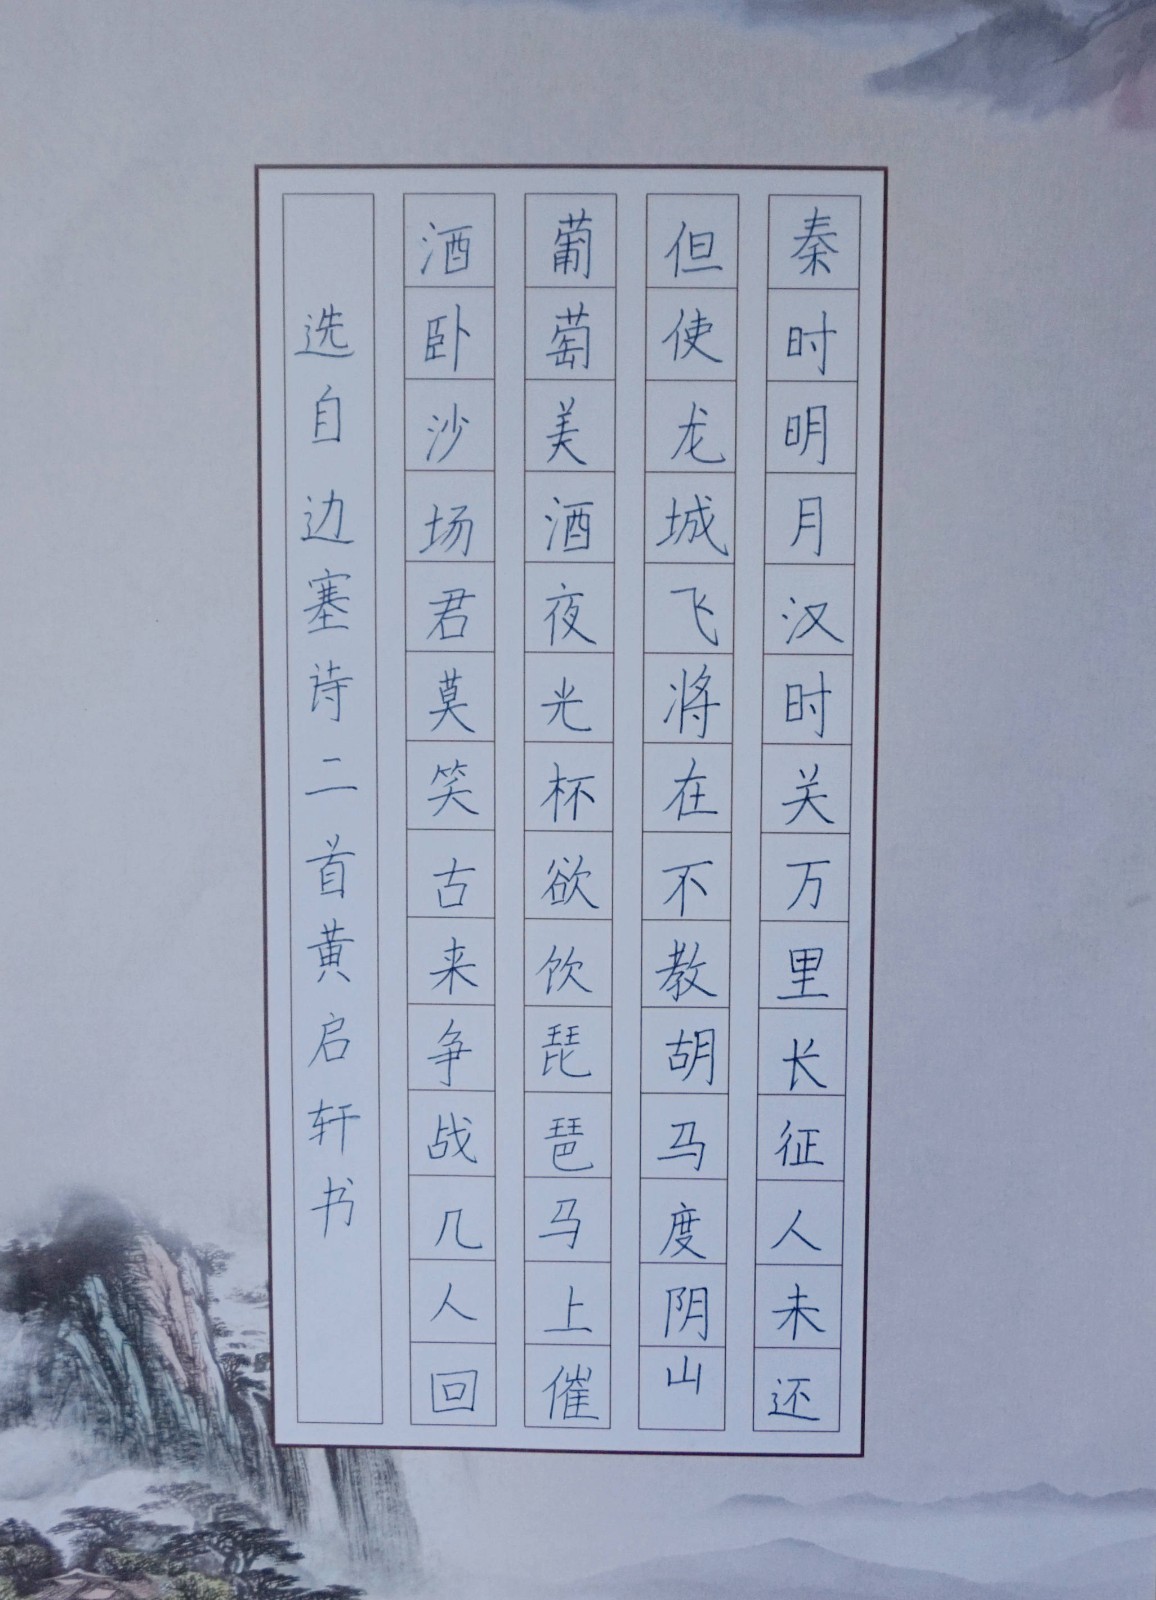 秦时明月汉时关万里长征人未还
但使龙城飞将在不教胡马度阴山
葡萄美酒夜光杯欲饮琵琶马上催
酒卧沙场君莫笑古来争战几人回
选自边塞诗二首黄启轩书